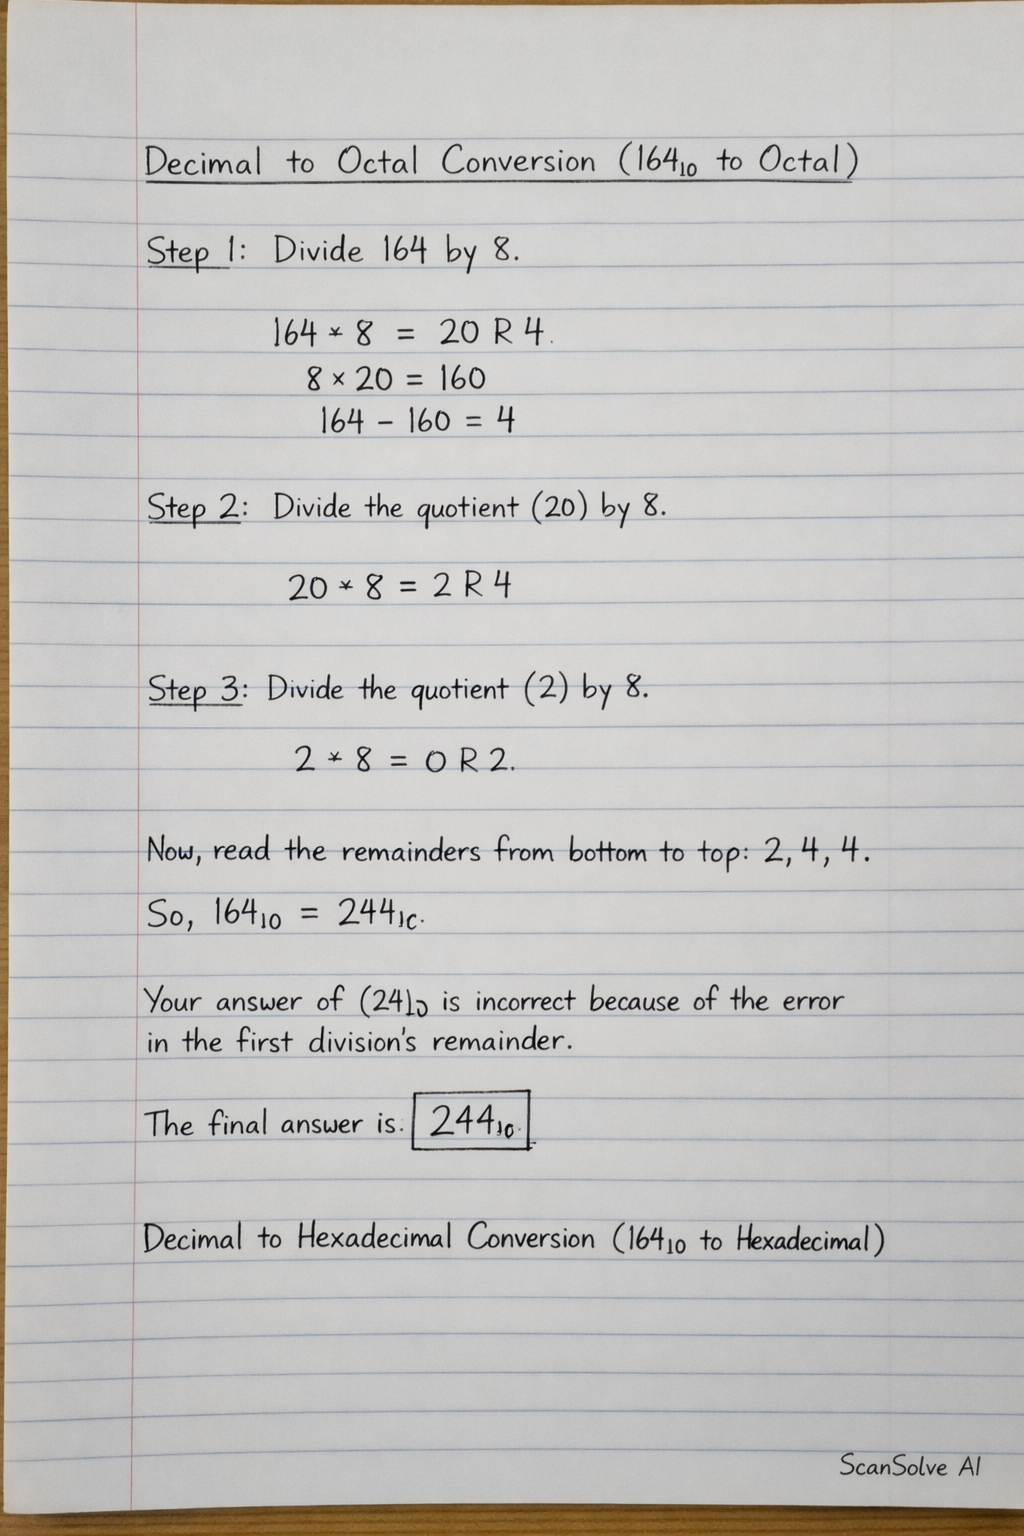 Decimal to Octal Conversion (164₁₀ to Octal)
Step 1: Divide 164 by 8.
164 * 8 = 20 R 4.
8 × 20 = 160
164 - 160 = 4
Step 2: Divide the quotient (20) by 8.
20 * 8 = 2 R 4
Step 3: Divide the quotient (2) by 8.
2 * 8 = 0 R 2.
Now, read the remainders from bottom to top: 2, 4, 4.
So, 164₁₀ = 244₁c.
Your answer of (24)₀ is incorrect because of the error
in the first division's remainder.
The final answer is. 244₁₀.
Decimal to Hexadecimal Conversion (164₁₀ to Hexadecimal)
ScanSolve AI